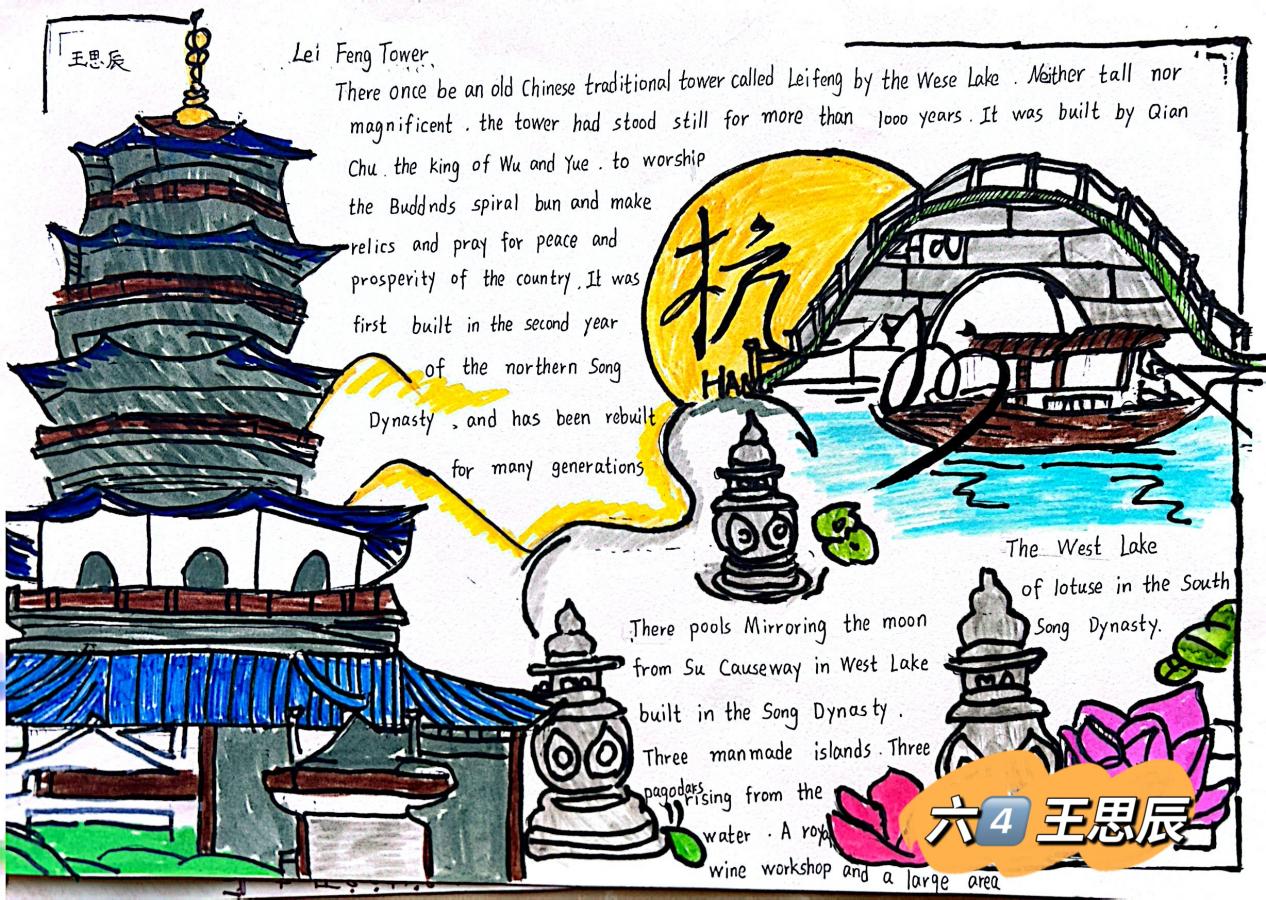 王思辰
Lei Feng Tower.
There once be an old Chinese traditional tower called Leifeng by the Wese Lake . Neither tall nor
magnificent . the tower had stood still for more than 1000 years . It was built by Qian
Chu . the king of Wu and Yue . to worship
the Buddnds spiral bun and make
relics and pray for peace and
prosperity of the country . It was
first built in the second year
of the northern Song
Dynasty , and has been rebuilt
for many generations
杭
HAN
HOU
The West Lake
of lotuse in the South
Song Dynasty.
There pools Mirroring the moon
from Su Causeway in West Lake
built in the Song Dynasty .
Three manmade islands . Three
pagodars rising from the
water . A royal
wine workshop and a large area
六4 王思辰